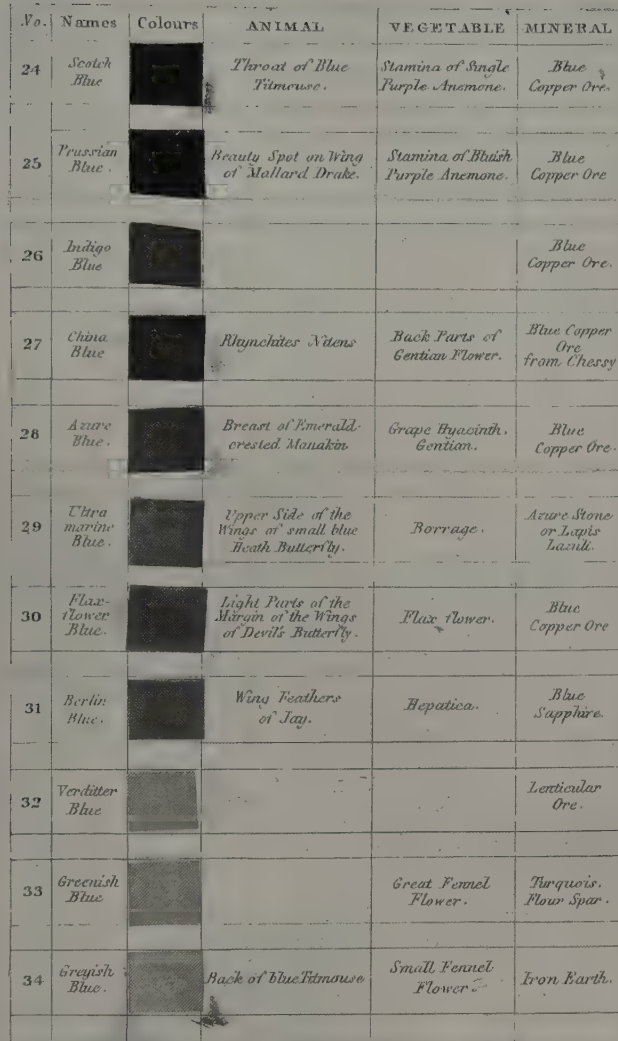 No. Names Colours ANIMAL VEGETABLE MINERAL
24 Scotch Blue Throat of Blue Titmouse. Stamina of Single Purple Anemone. Blue Copper Ore.
25 Prussian Blue. Beauty Spot on Wing of Mallard Drake. Stamina of Bluish Purple Anemone. Blue Copper Ore
26 Indigo Blue Blue Copper Ore.
27 China Blue Rhynchites Nitens Back Parts of Gentian Flower. Blue Copper Ore from Chessy
28 Azure Blue. Breast of Emerald-crested Manakin Grape Hyacinth. Gentian. Blue Copper Ore.
29 Ultra marine Blue. Upper Side of the Wings of small blue Heath Butterfly. Borrage. Azure Stone or Lapis Lazuli.
30 Flax-flower Blue. Light Parts of the Margin of the Wings of Devil's Butterfly. Flax flower. Blue Copper Ore
31 Berlin Blue. Wing Feathers of Jay. Hepatica. Blue Sapphire.
32 Verditter Blue Lenticular Ore.
33 Greenish Blue Great Fennel Flower. Turquois. Flour Spar.
34 Greyish Blue. Back of blue Titmouse Small Fennel Flower Iron Earth.